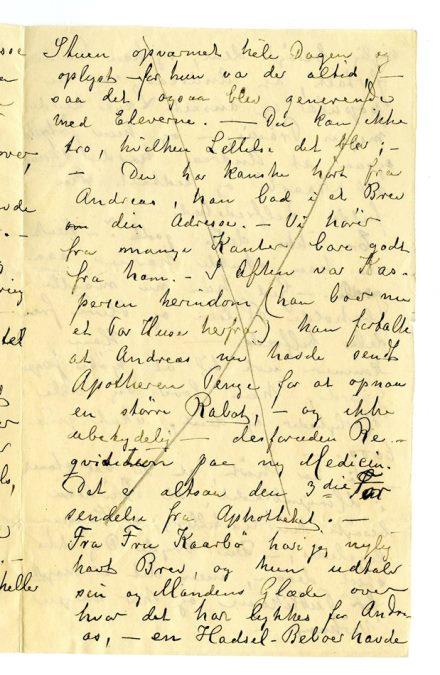 Stuen opvarmet hele Dagen og
oplyst for hun va der altid, –
saa det ogsaa blev generende
med Eleverne. – Du kan ikke
tro, hvilken Lettelse det blev; –
– Du har kanske hørt fra
Andreas, han bad i et Brev
om din Adresse. – Vi hører
fra mange Kanter bare godt
fra ham. – I Aften var Kas-
persen herindom (han boer nu
et Par Huse herfra) han fortalte
at Andreas nu havde sendt
Apotheren Penge for at opnaa
en större Rabat, – og ikke
ubetydelig – desforuden Re-
quisition paa ny Medicin.
Det er altsaa den 3die
sendelse fra Aphotheket. –
Fra Fru Kaarbö har jeg nylig
havt Brev, og hun udtaler
sin og Mandens Glæde over
hvor det har lykkes for Andre-
as, – en Hadsel-Beboer havde
over,
heller